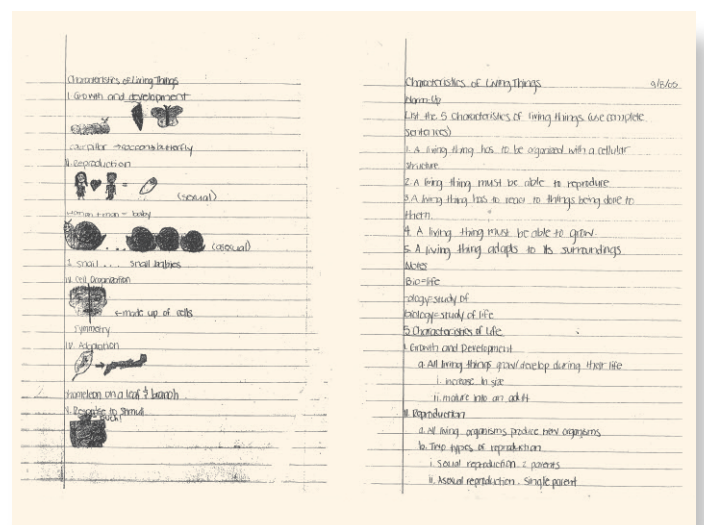 Characteristics of Living Things
I. Growth and development
caterpillar → cocoon → butterfly
II. Reproduction
(sexual)
woman + man = baby
(asexual)
1 snail ... snail babies
IV. Cell Organization
← made up of cells
symmetry
IV. Adaptation
chameleon on a leaf & branch
V. Response to Stimuli
ouch!
Characteristics of Living Things 9/8/00
Warm-Up
List the 5 characteristics of living things (use complete
sentences)
1. A living thing has to be organized with a cellular
structure.
2. A living thing must be able to reproduce
3. A living thing has to react to things being done to
them.
4. A living thing must be able to grow.
5. A living thing adapts to its surroundings
Notes
Bio=life
ology=study of
biology=study of life
5 Characteristics of Life
I. Growth and Development
a. All living things grow/develop during their life
i. increase in size
ii. mature into an adult
II. Reproduction
a. All living organisms produce new organisms
b. Two types of reproduction
i. Sexual reproduction - 2 parents
ii. Asexual reproduction - Single parent